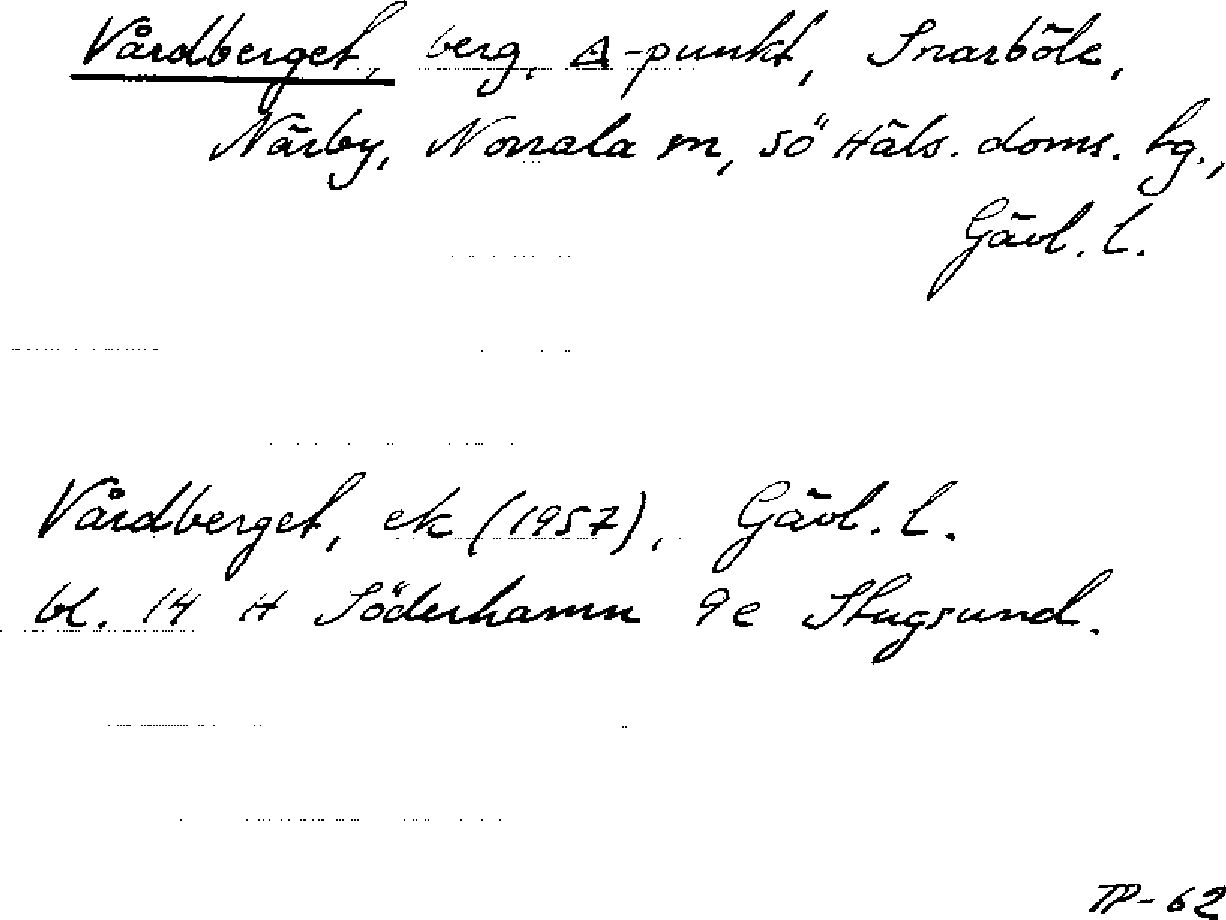 Vårdberget, berg, A-punkt, Snarböle,
Närby, Norrala sn, Sö Häls. doms. hg.,
Gävl. l.
Vårdberget, ek (1957), Gävl. l.
bl. 14 H Söderhamn 9e Stugsund.
TP-62